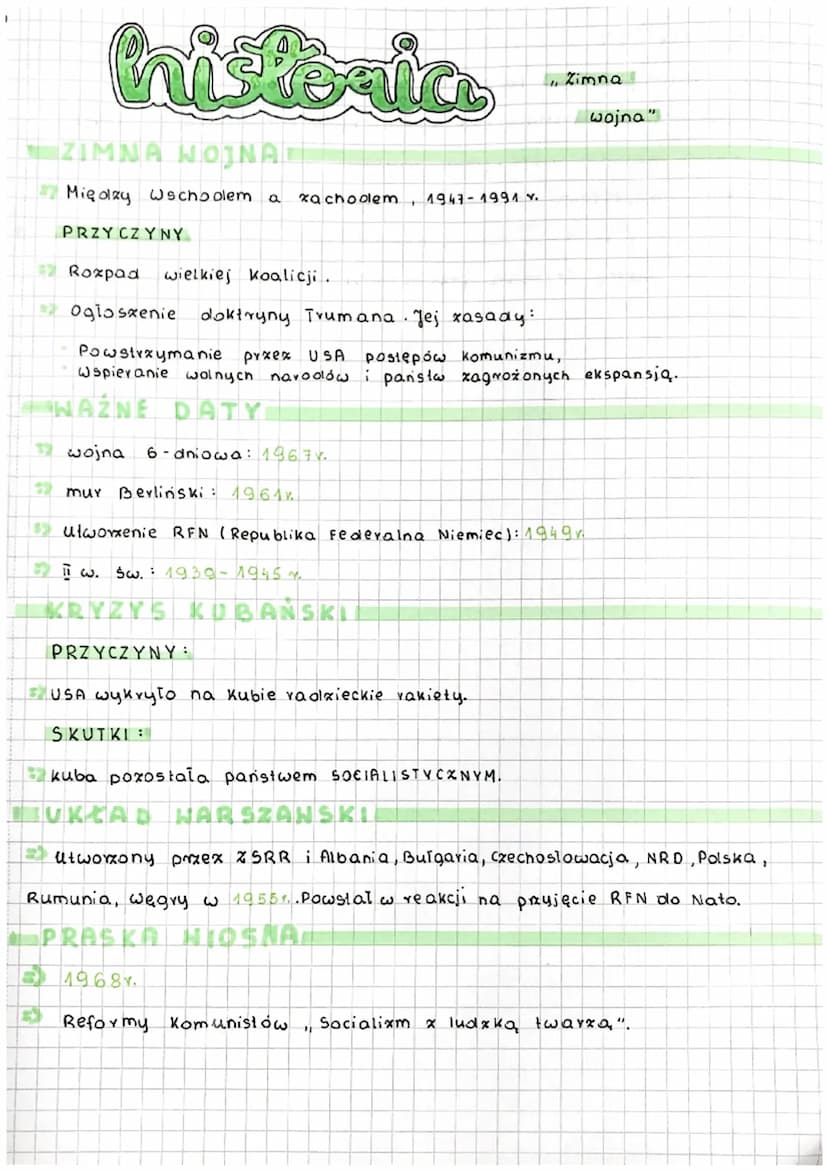 historia
„Zimna
wojna"
ZIMNA WOJNA
=> Między Wschodem a zachodem, 1947-1991 r.
PRZYCZYNY
=> Rozpad wielkiej koalicji.
=> Ogłoszenie doktryny Trumana. Jej zasady:
• Powstrzymanie przez USA postępów komunizmu,
• Wspieranie wolnych narodów i państw zagrożonych ekspansją.
WAŻNE DATY
=> wojna 6-dniowa: 1967r.
=> mur Berliński: 1961r.
=> Utworzenie RFN (Republika Federalna Niemiec): 1949r.
=> II w. św.: 1939-1945 r.
KRYZYS KUBAŃSKI
PRZYCZYNY:
=> USA wykryło na Kubie radzieckie rakiety.
SKUTKI:
=> Kuba pozostała państwem SOCIALISTYCZNYM.
UKŁAD WARSZAWSKI
=> Utworzony przez ZSRR i Albania, Bułgaria, Czechosłowacja, NRD, Polska,
Rumunia, Węgry w 1955r. Powstał w reakcji na przyjęcie RFN do Nato.
PRASKA WIOSNA
=> 1968r.
=> Reformy Komunistów „Socializm z ludzką twarzą".